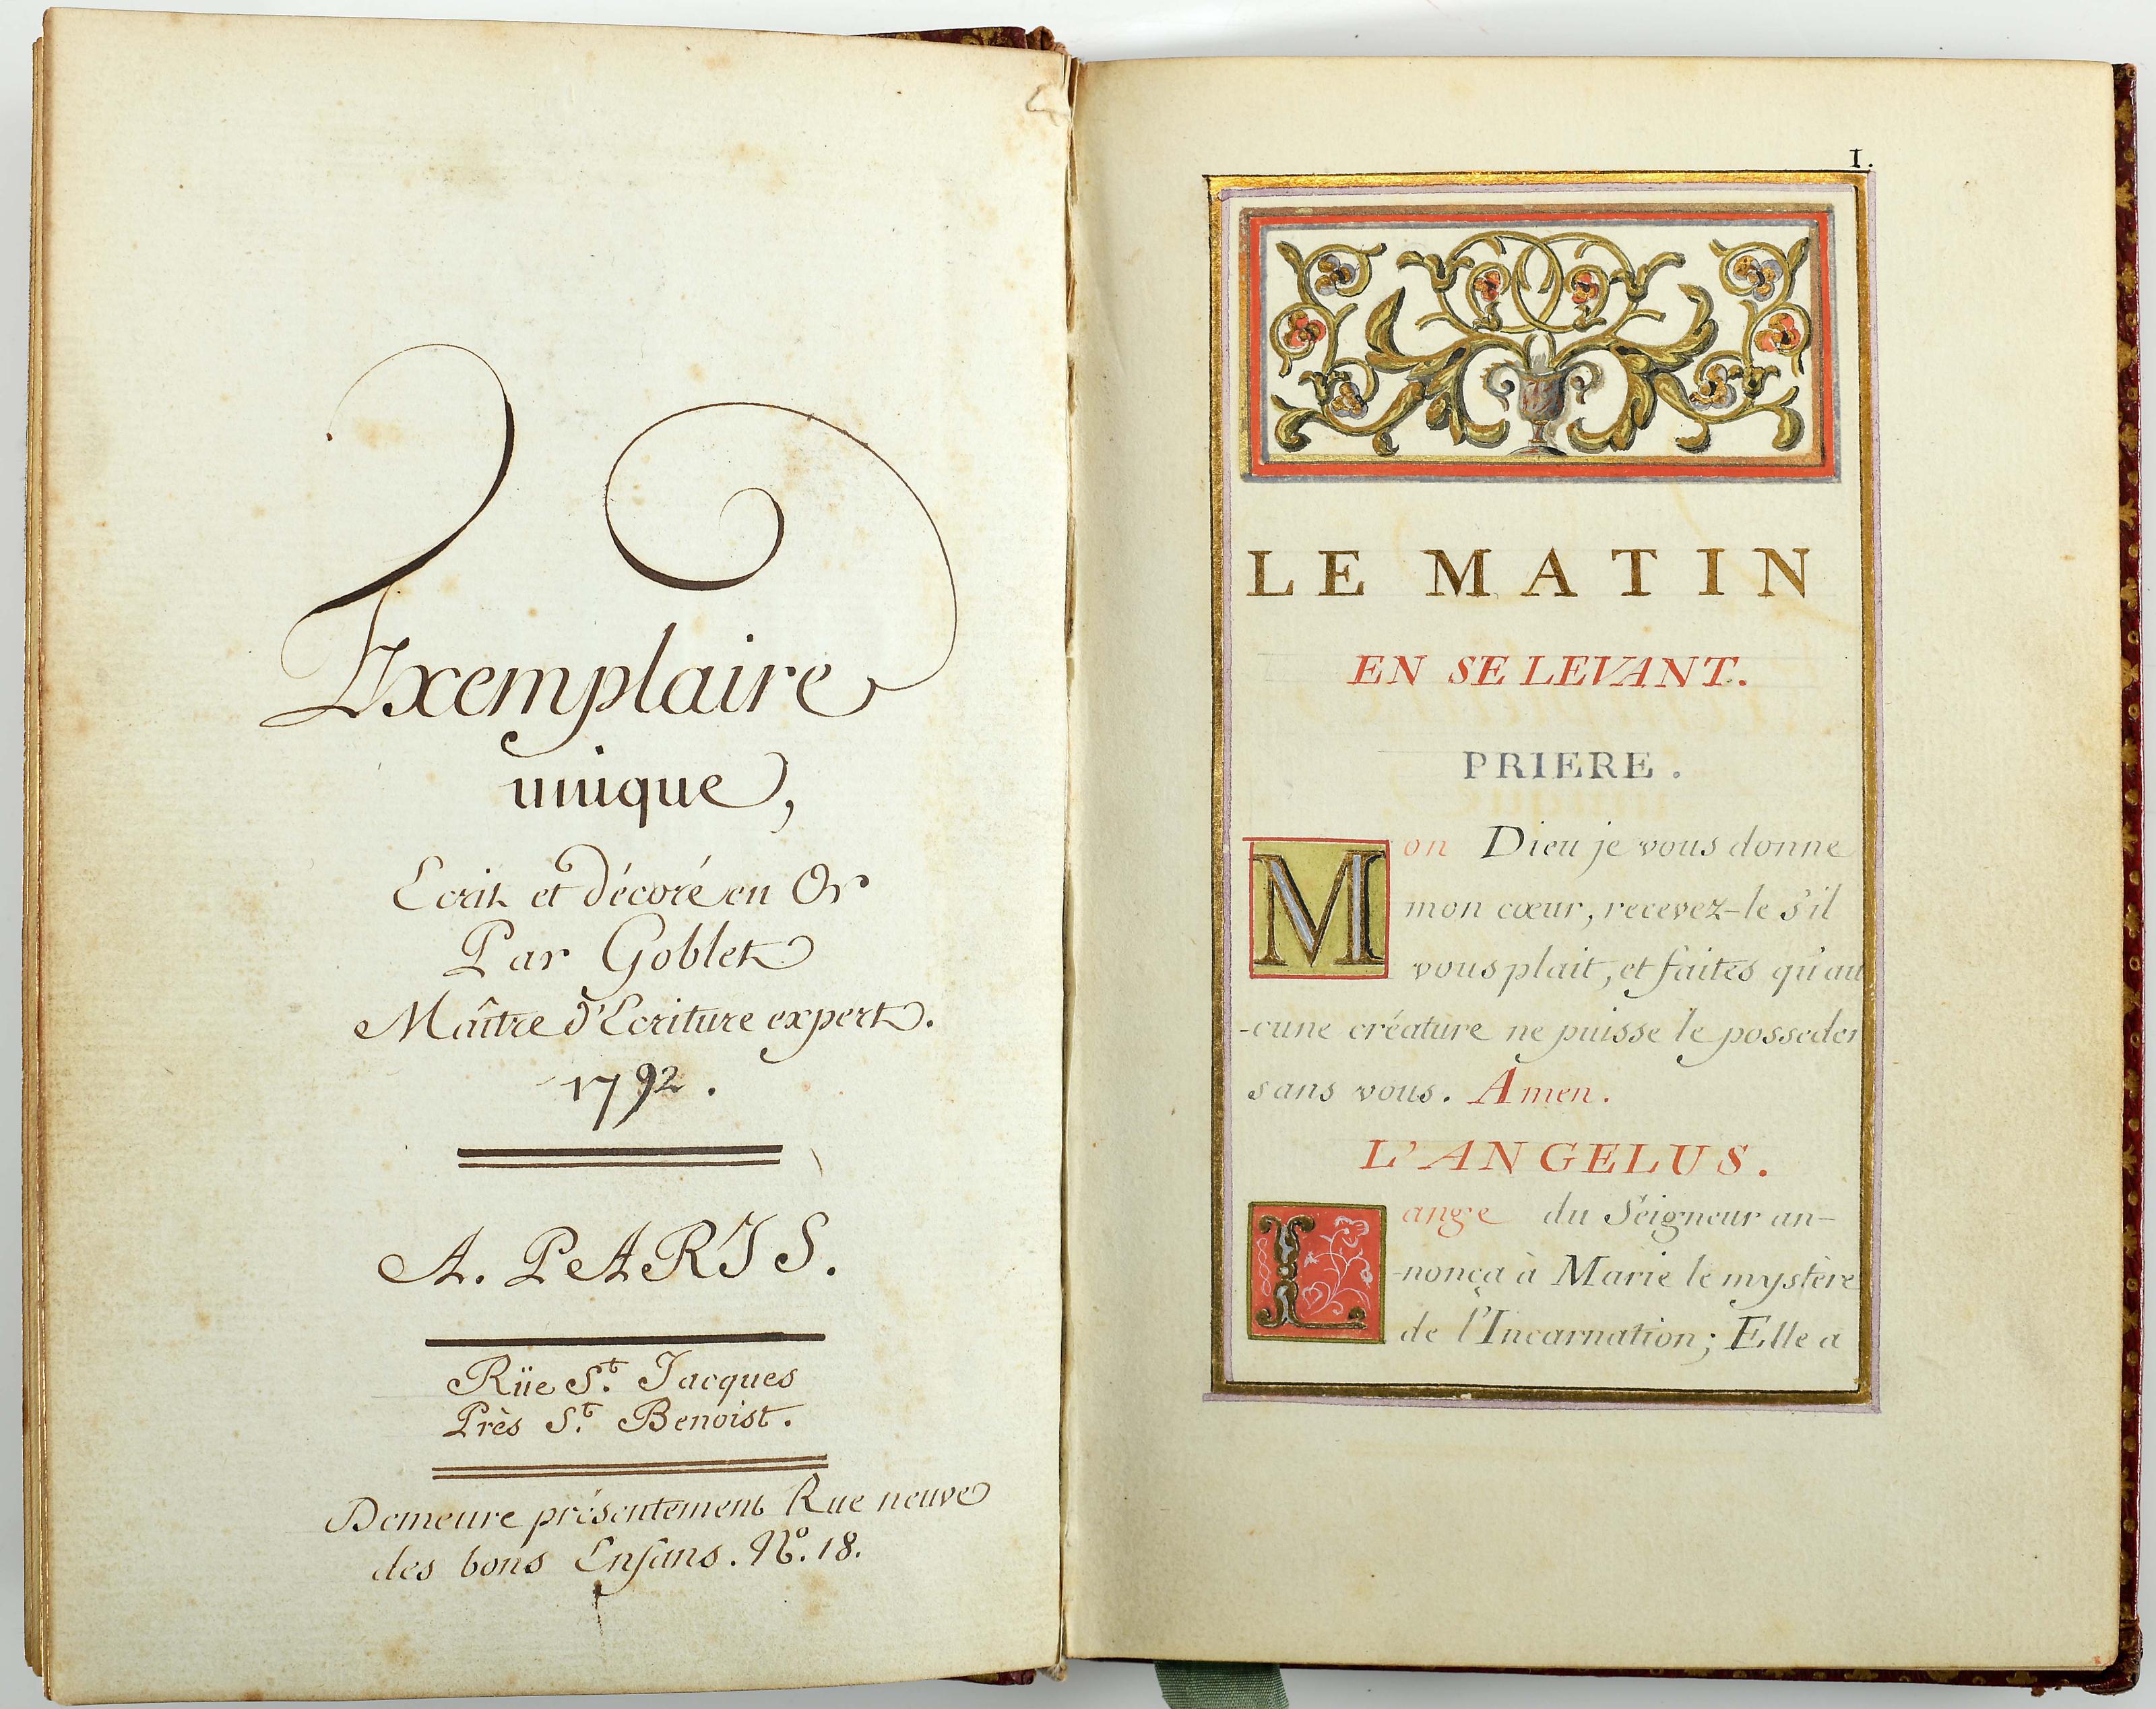 Exemplaire
unique,
Ecrit et décoré en Or
Par Goblet
Maître d'Ecriture expert.
1792.
A. PARIS.
Rüe St. Jacques
Près St. Benoist.
Demeure présentement Rue neuve
des bons Enfans. No. 18.
1.
LE MATIN
EN SE LEVANT.
PRIERE.
Mon Dieu je vous donne
mon cœur, recevez-le s'il
vous plait, et faites qu'au
-cune créature ne puisse le posseder
sans vous. Amen.
L'ANGELUS.
Lange du Seigneur an-
-nonça à Marie le mystère
de l'Incarnation; Elle a